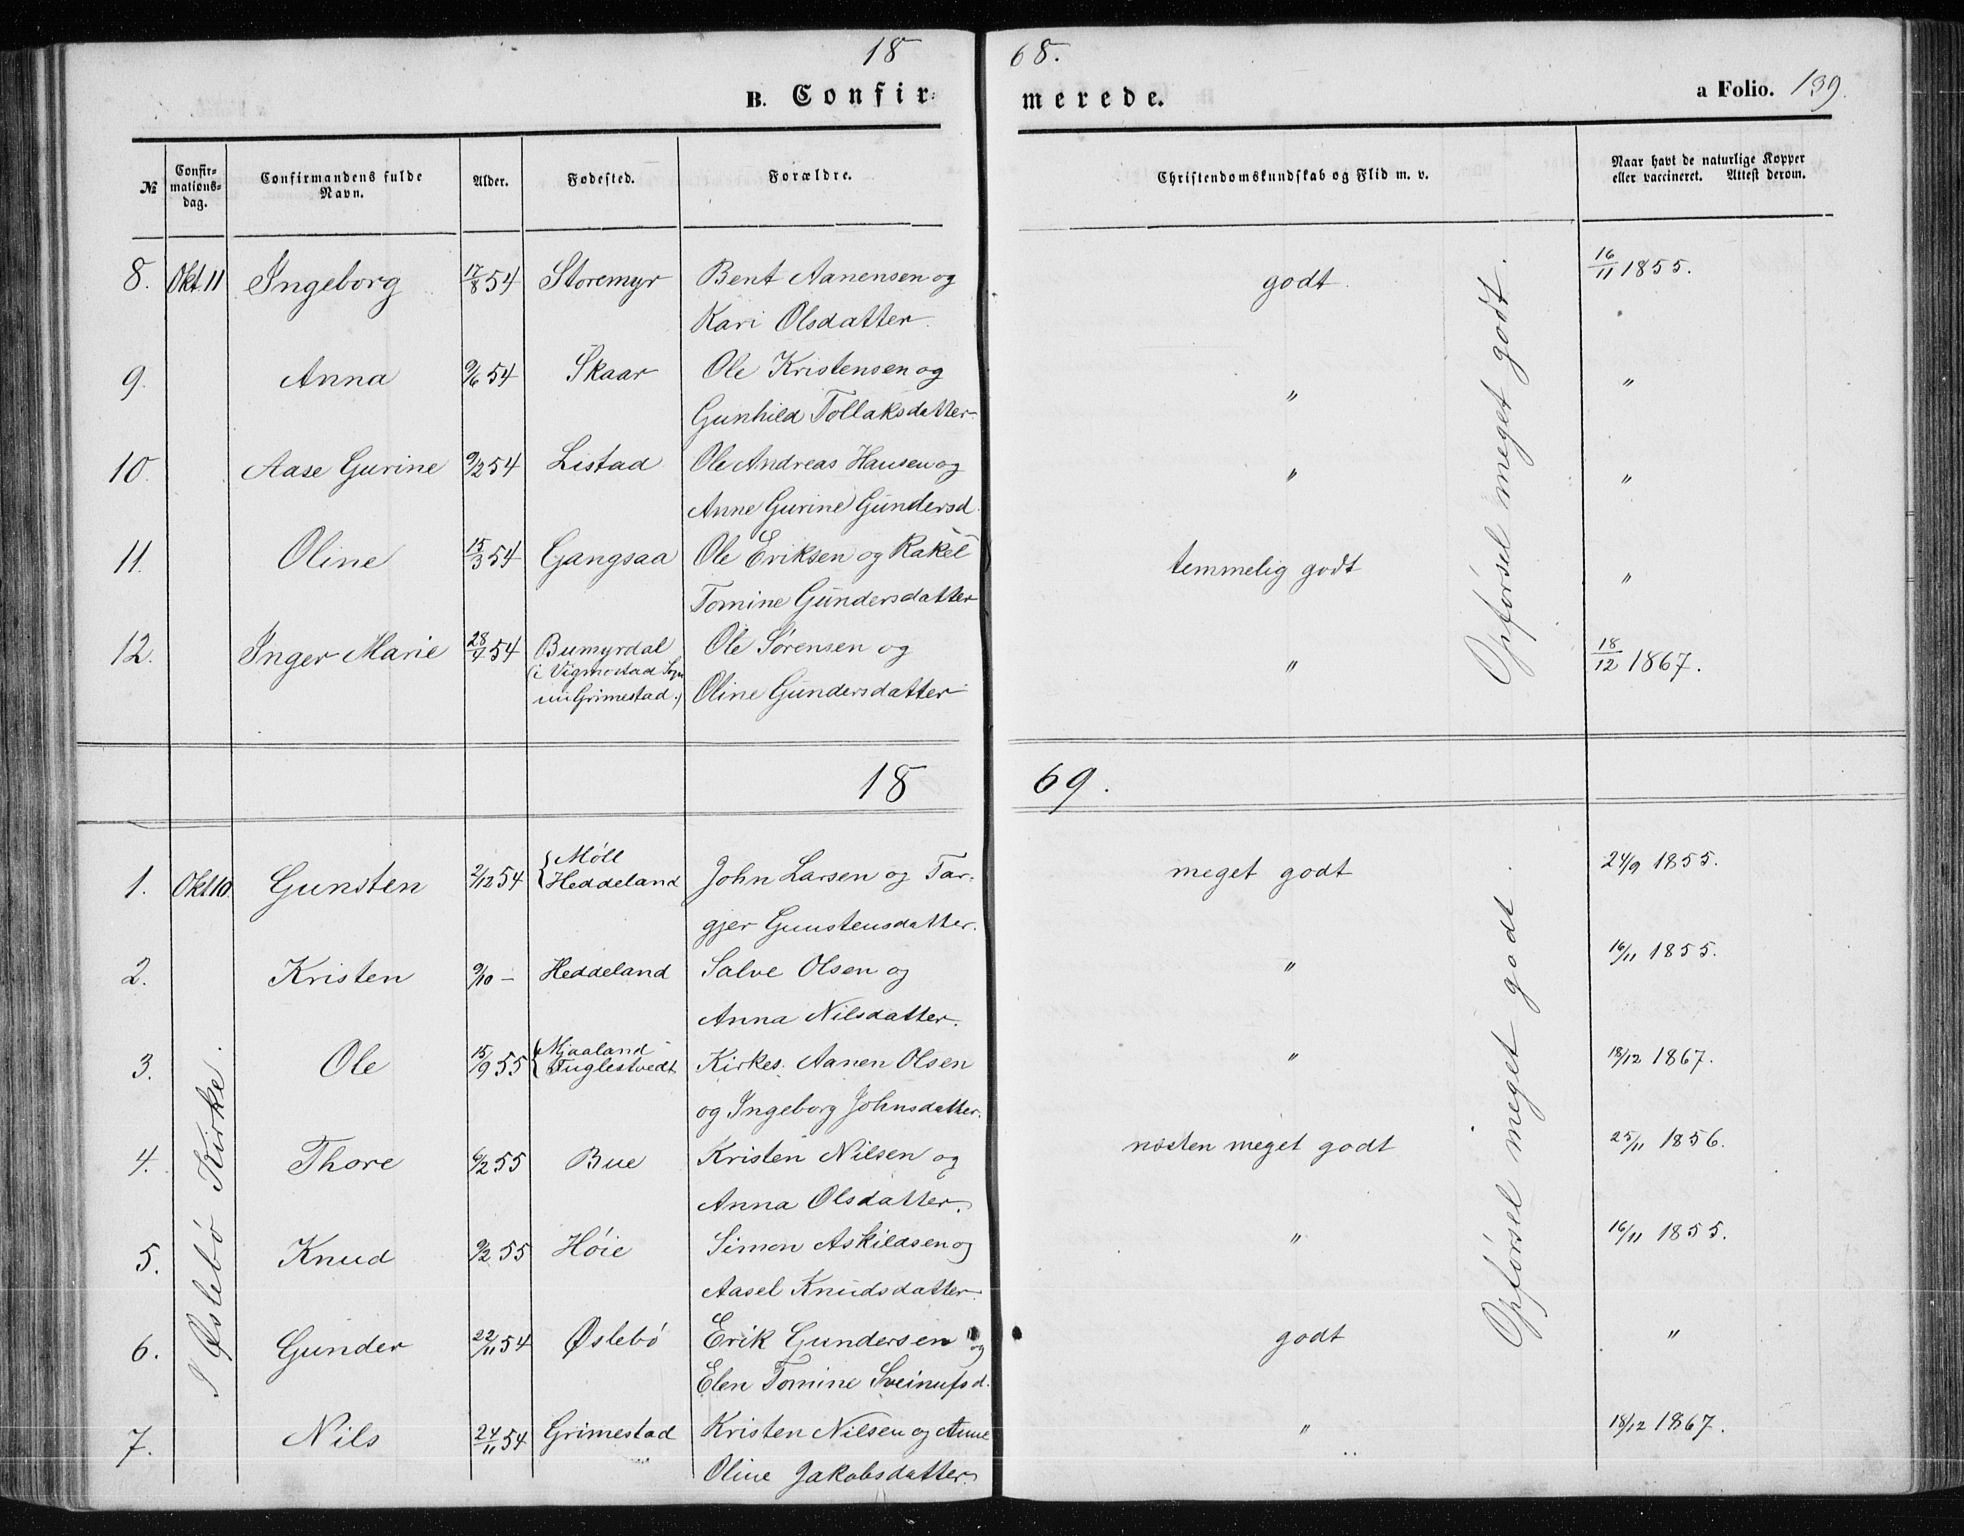 18 68.
B. Confir= merede. a Folio. 139.
№ Confir-mations-dag. Confirmandens fulde Navn. Alder. Fødested. Forældre. Christendomskundskab og Flid m. v. Naar havt de naturlige Kopper eller vaccineret. Attest derom.
8. Okt. 11 Ingeborg 17/8 54 Storemyr Bent Aanensen og godt. 16/11 1855.
Kari Olsdatter.
9. Anna 9/6 54 Skaar Ole Kristensen og " "
Gunhild Tollaksdatter
10. Aase Gurine 9/2 54 Listad Ole Andreas Hansen og " "
Anne Gurine Gundersd.
11. Oline 15/3 54 Gangsaa Ole Eriksen og Rakel temmelig godt "
Tomine Gundersdatter
12. Inger Marie 28/4 54 Bumyrdal Ole Sørensen og " 18/12 1867.
(i Vigmostad Sogn
nu Grimestad.) Oline Gundersdatter
Opførsel meget godt.
18 69.
1. Okt 10. Gunsten 2/12 54 { Møll Heddeland John Larsen og Tar- meget godt 24/9 1855.
gjer Gunstensdatter.
2. Kristen 9/10 - Heddeland Salve Olsen og " 16/11 1855.
Anna Nilsdatter.
3. Ole 15/9 55 { Mjaaland Fuglestvedt Kirkes. Aanen Olsen " 18/12 1867.
og Ingeborg Johnsdatter.
4. Thore 6/2 55 Bue Kristen Nilsen og næsten meget godt 25/11 1856.
Anna Olsdatter.
5. Knud 9/2 55 Høie Simon Askildsen og " 16/11 1855.
Aasel Knudsdatter.
6. Gunder 22/11 54 Øslebø Erik Gundersen og godt "
Elen Tomine Sveinufsd.
7. Nils 24/11 54 Grimestad Kristen Nilsen og Anne " 18/12 1867.
Oline Jakobsdatter.
I Øslebø Kirke.
Opførsel meget godt.